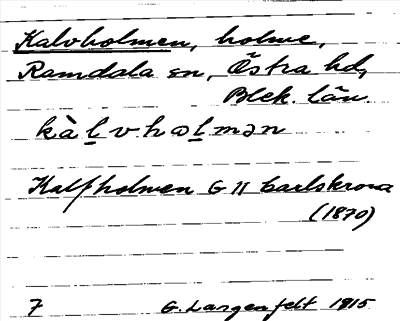 Kalvholmen, holme,
Ramdala sn, Östra hd,
Blek. län.
kàl̲vhɷl̲mən
Kalfholmen G 11 Carlskrona
(1870)
7 G. Langenfelt 1915